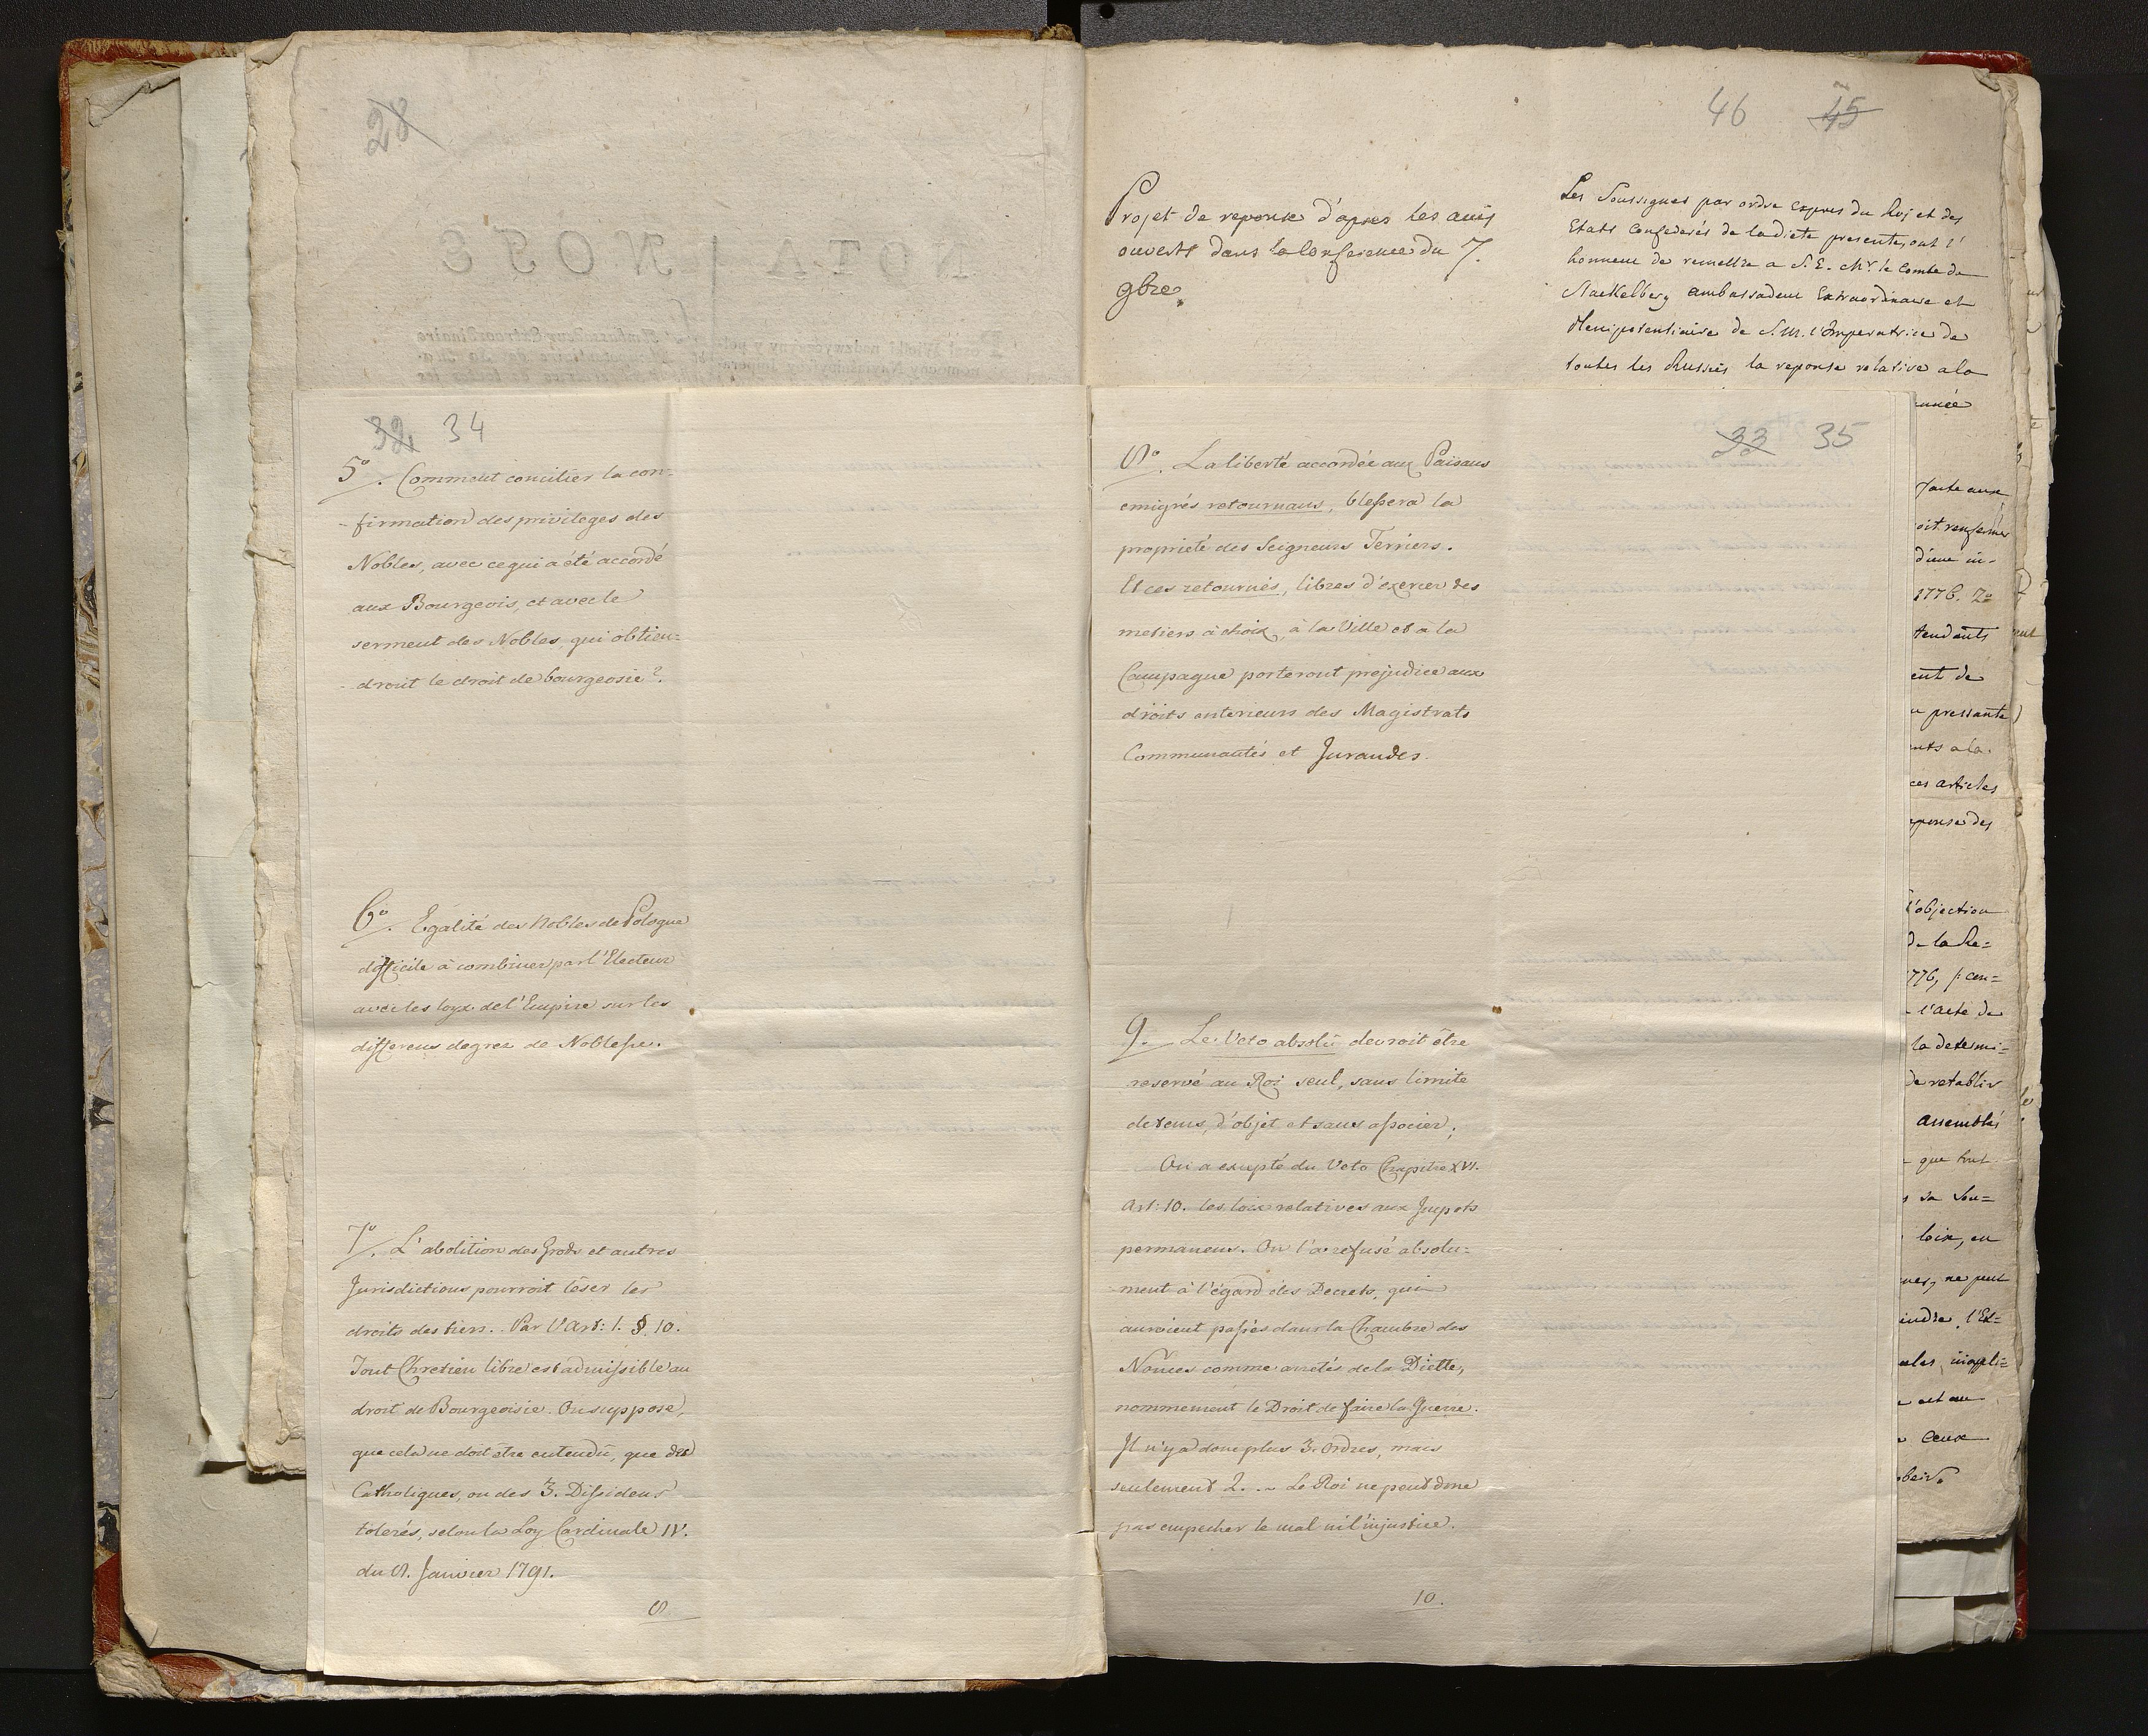 28
46 45
Projet de reponse d'apres les avis
ouverts dans la Conference du 7.
gbre.
Les Soussignes par ordre expres du Roj et des
Etats Confederés de la diete presente, ont l'
honneur de remettre a S. E. Mr. le Comte de
Stackelberg ambassadeur Extraordinaire et
Plenipotentiaire de S. M. l'Imperatrice de
toutes les Russies la reponse relative a la
32 34
5º. Comment concilier la con=
-firmation des privileges des
Nobles, avec ce qui a été accordé
aux Bourgeois, et avec le
serment des Nobles, qui obtien=
-dront le droit de bourgeosie?.
6º. Egalité des Nobles de Pologne
difficile à combiner par l'Electeur
avec les loyx de l'Empire sur les
differens degrez de Noblesse.
7º. L'abolition des Grods et autres
Jurisdictions pourroit léser les
droits des tiers. Par l'Art: 1. § 10.
Tout Chretien libre est admissible au
droit de Bourgeoisie. On suppose,
que cela ne doit être entendû, que des
Catholiques, ou des 3. Dissidens
tolerés, selon la Loy Cardinale IV.
du 8. Janvier 1791.
8
33 35
8º. La liberté accordée aux Païsans
emigrés retournans, blessera la
proprieté des Seigneurs Terriers.
Et ces retournés, libres d'exercer des
metiers à choix, à la Ville et à la
Campagne porteront prejudice aux
droits anterieurs des Magistrats
Communautés et Jurandes.
9. Le Veto absolû devroit être
reservé au Roi seul, sans limite
de tems, d'objet et sans associer;
On a excepté du Veto Chapitre XVI.
Art: 10. les loix relatives aux Impots
permanens. On l'a refusé absolu=
ment à l'égard des Decrets, qui
auroient passés dans la Chambre des
Nonces comme arretés de la Diette,
nommement le Droit de faire la Guerre.
Il n'y a donc plus 3. Ordres, mais
seulement 2. .~ Le Roi ne peut donc
pas empecher le mal ni l'injustice.
10.
1776. 2º
pressante
ces articles
l'objection
de la Re=
1776,
l'acte de
la determi=
de retablir
assemblés
que tout
loix, en
ne peut
ceux